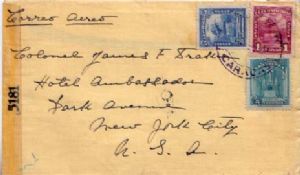 Correo Aereo
Colonel James F. Trott
Hotel Ambassador
Park Avenue
New York City
U. S. A.
5181